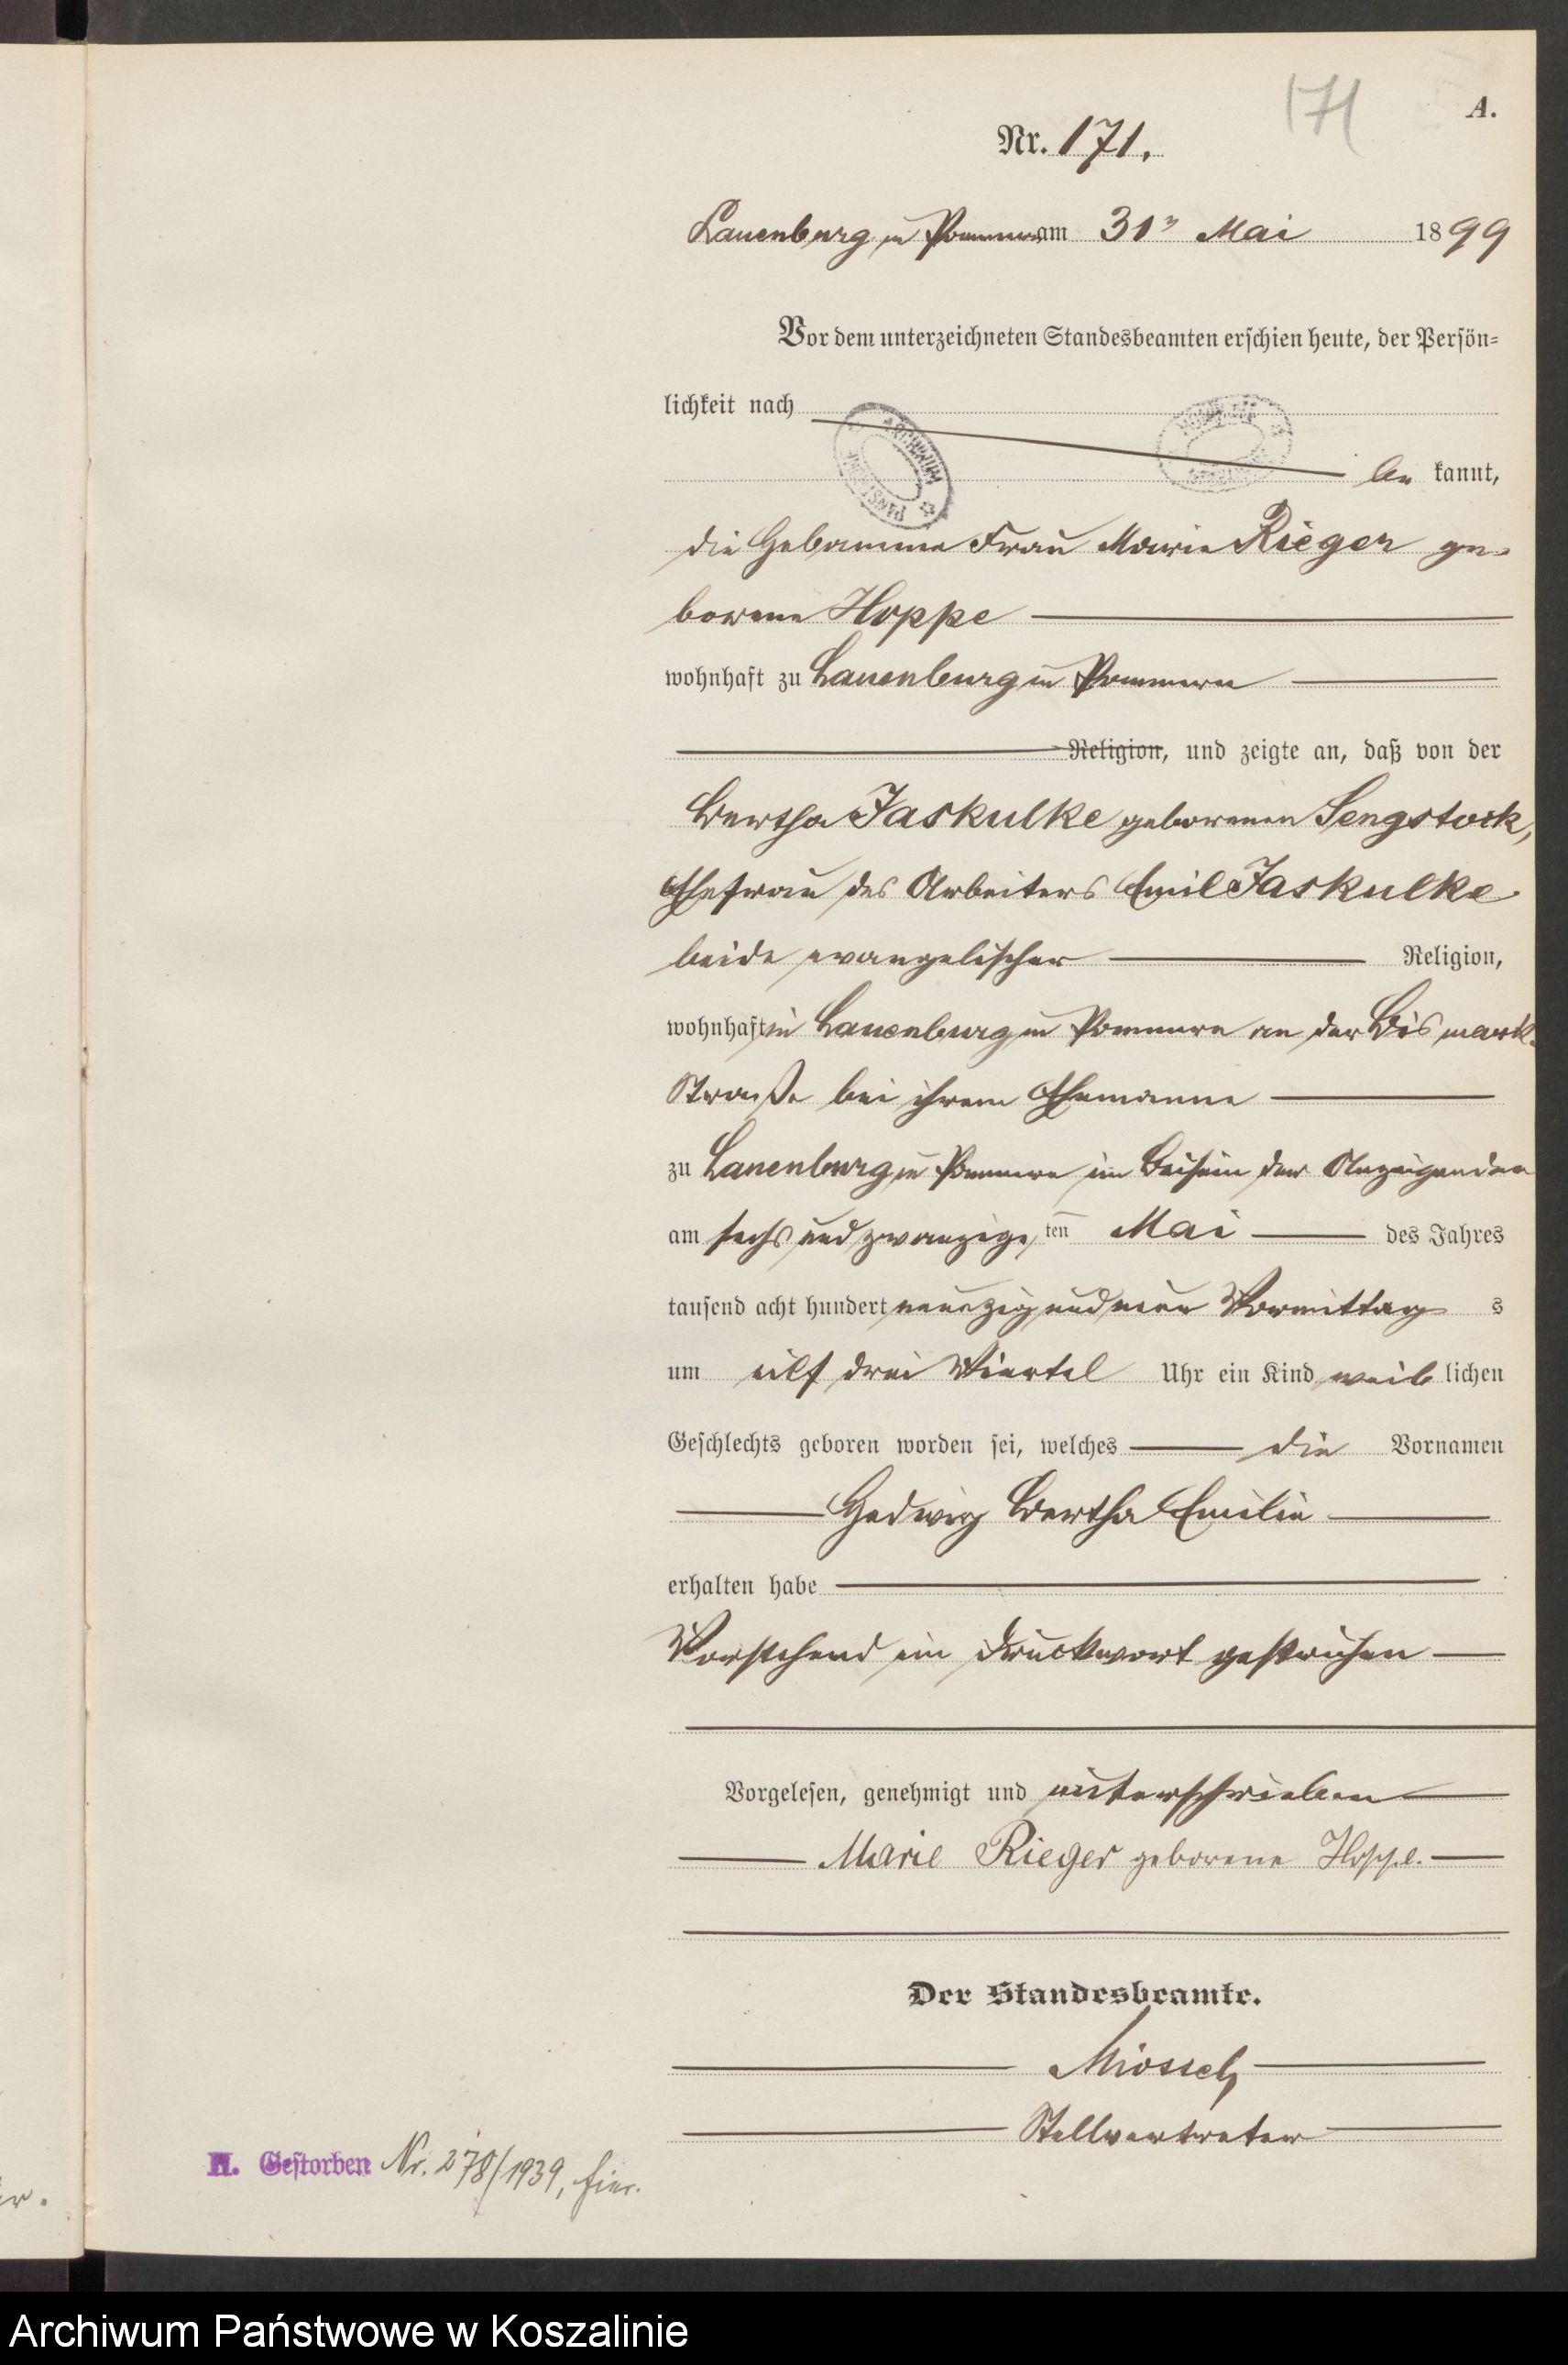 171
A.
Nr. 171.
Lauenburg in Pommern am 31n Mai 1899
Vor dem unterzeichneten Standesbeamten erschien heute, der Persön=
lichkeit nach
be kannt,
die Hebamme Frau Marie Rieger ge-
borene Hoppe
wohnhaft zu Lauenburg in Pommern
Religion, und zeigte an, daß von der
Bertha Jaskulke geborenen Sengstock,
Ehefrau des Arbeiters Emil Jaskulke
beide evangelischer Religion,
wohnhaft in Lauenburg in Pommern an der Bismark-
Straße bei ihrem Ehemanne
zu Lauenburg in Pommern im Beisein der Anzeigenden
am sechs und zwanzigs ten Mai des Jahres
tausend acht hundert neunzig und neun Vormittag s
um eilf drei Viertel Uhr ein Kind weib lichen
Geschlechts geboren worden sei, welches die Vornamen
Hedwig Bertha Emilie
erhalten habe
Vorstehend ein Druckwort gestrichen
Vorgelesen, genehmigt und unterschrieben
Marie Rieger geborene Hoppe.
Der Standesbeamte.
Stellvertreter
H. Gestorben Nr. 278/1939, hier.
Archiwum Państwowe w Koszalinie